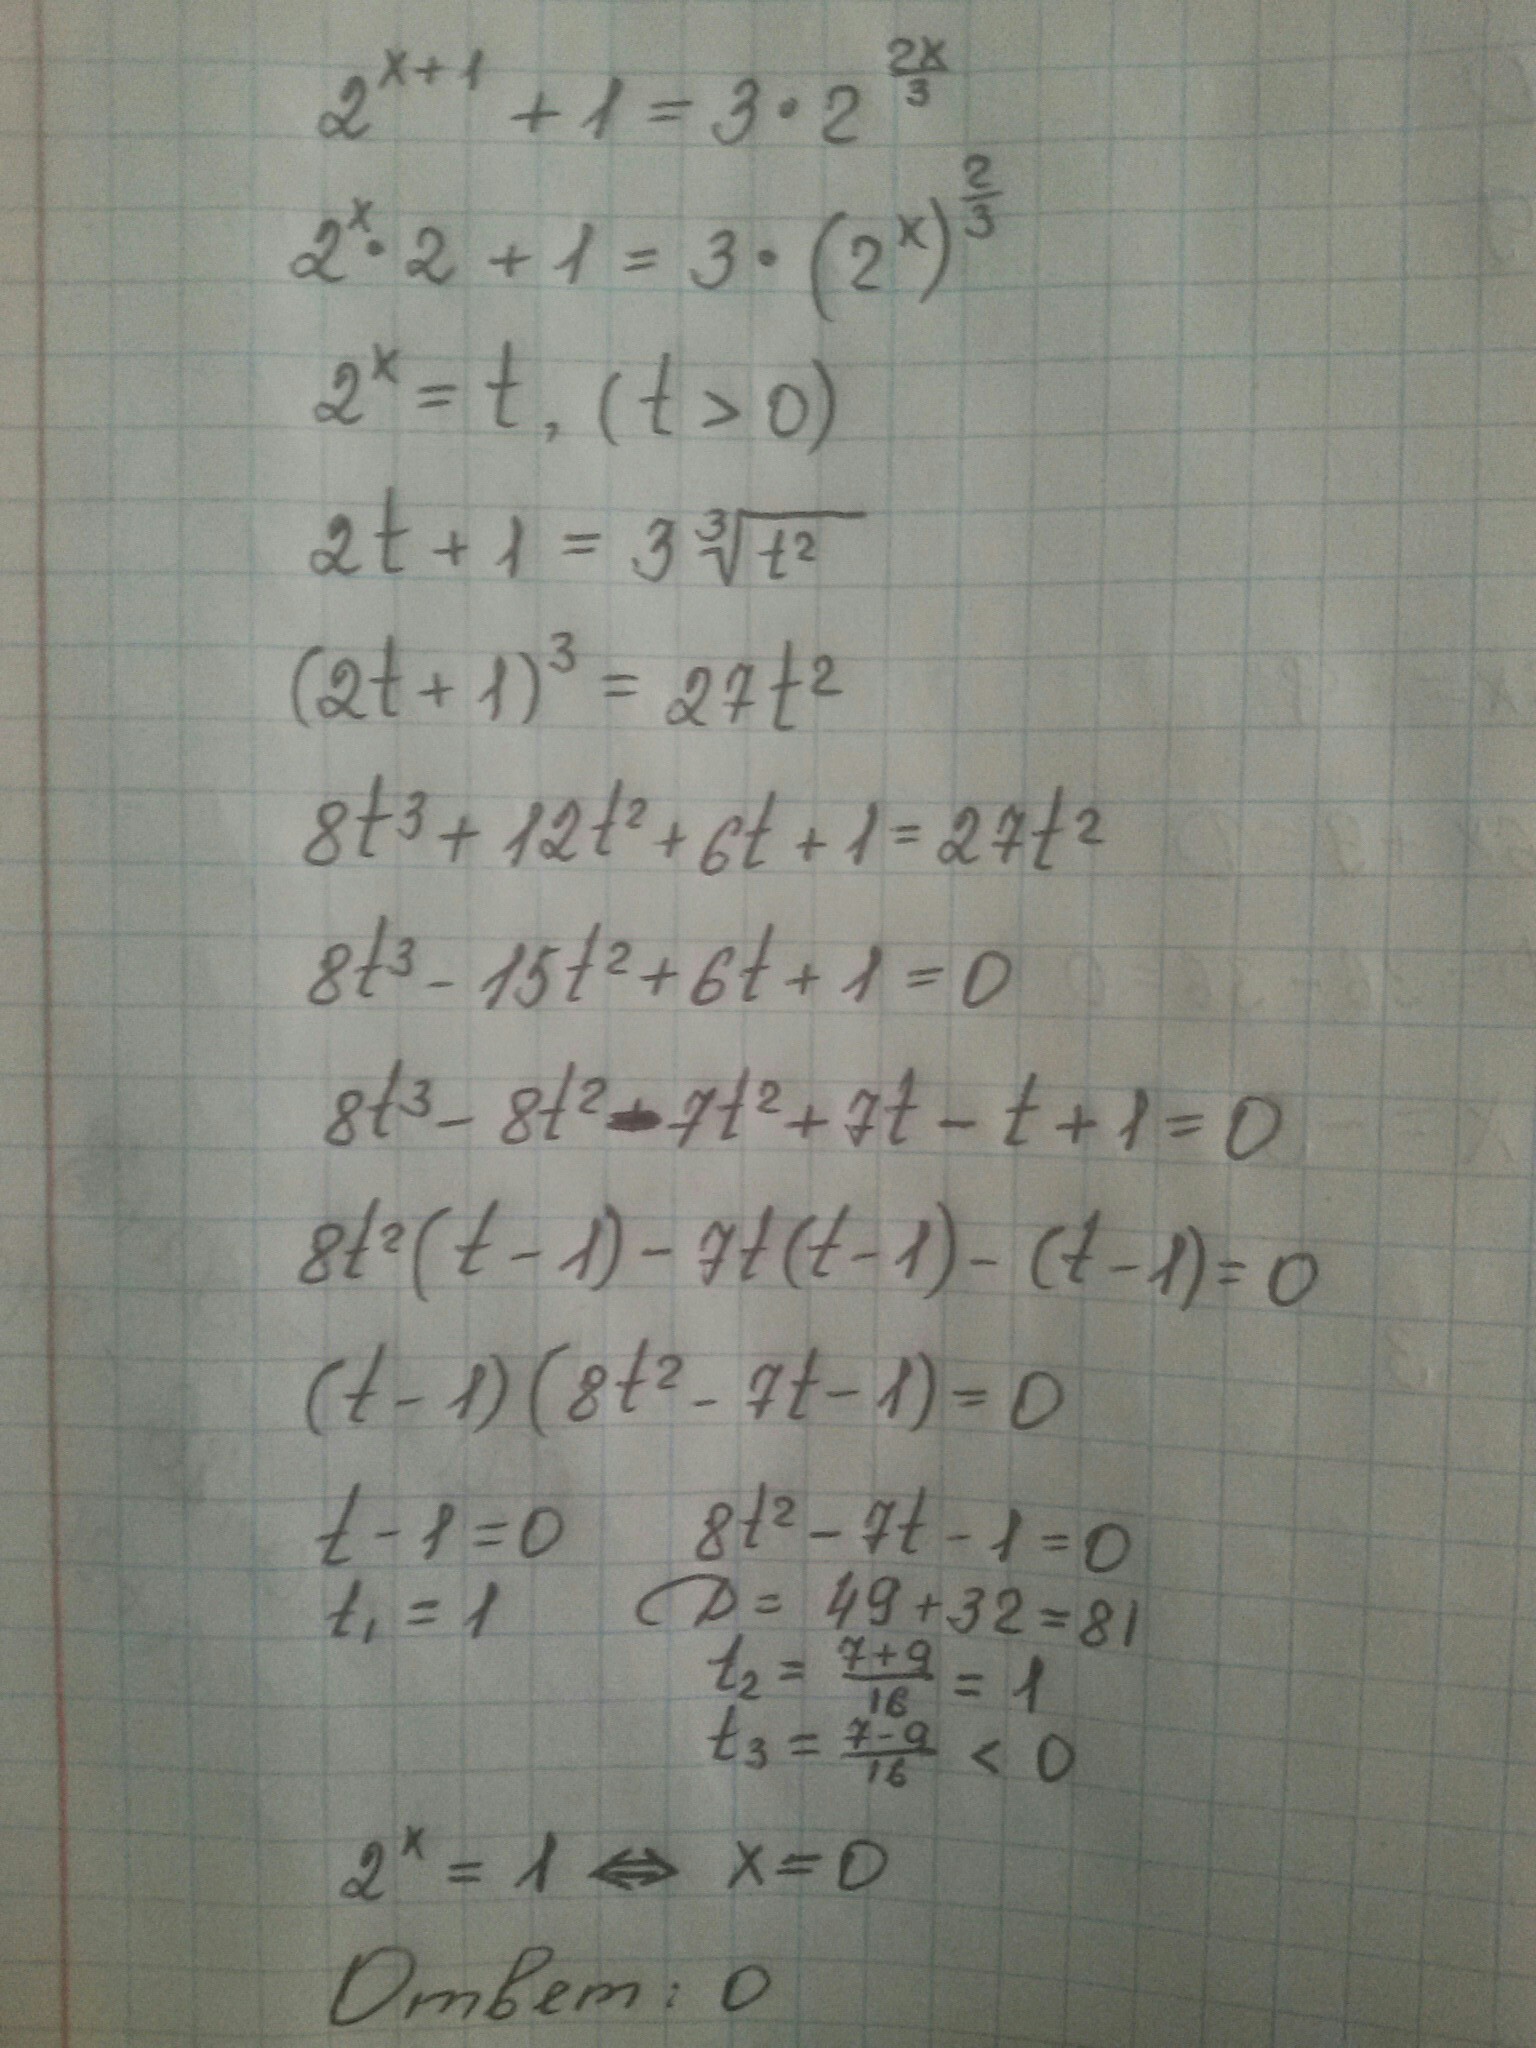 2^{x+1} + 1 = 3 · 2^{\frac{2x}{3}}
2^x · 2 + 1 = 3 · (2^x)^{\frac{2}{3}}
2^x = t, (t > 0)
2t + 1 = 3∛(t²)
(2t + 1)³ = 27t²
8t³ + 12t² + 6t + 1 = 27t²
8t³ - 15t² + 6t + 1 = 0
8t³ - 8t² - 7t² + 7t - t + 1 = 0
8t²(t - 1) - 7t(t - 1) - (t - 1) = 0
(t - 1)(8t² - 7t - 1) = 0
t - 1 = 0 8t² - 7t - 1 = 0
t₁ = 1 D = 49 + 32 = 81
t₂ = \frac{7+9}{16} = 1
t₃ = \frac{7-9}{16} < 0
2^x = 1 ⇔ x = 0
Ответ: 0